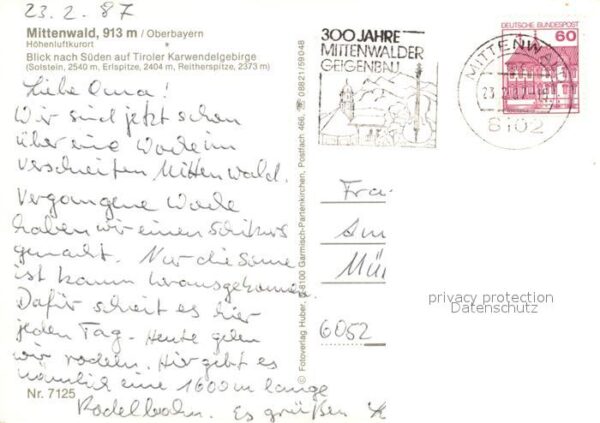 23.2.87
Mittenwald, 913 m / Oberbayern
Höhenluftkurort
Blick nach Süden auf Tiroler Karwendelgebirge
(Solstein, 2540 m, Erlspitze, 2404 m, Reitherspitze, 2373 m)
Liebe Oma!
Wir sind jetzt schon
über eine Woche im
verschneiten Mittenwald.
Vergangene Woche
haben wir einen Schikurs
gemacht. Nur die Sonne
ist kaum herausgekommen.
Dafür schneit es hier
jeden Tag. Heute gehen
wir rodeln. Hier gibt es
nämlich eine 1600 m lange
Nr. 7125
Rodelbahn. Es grüßen
© Fotoverlag Huber, 8100 Garmisch-Partenkirchen, Postfach 466, ☎ 08821/59048
300 JAHRE
MITTENWALDER
GEIGENBAU
DEUTSCHE BUNDESPOST
60
MITTENWALD
8102
Fra
Am
Mü
6052
privacy protection
Datenschutz